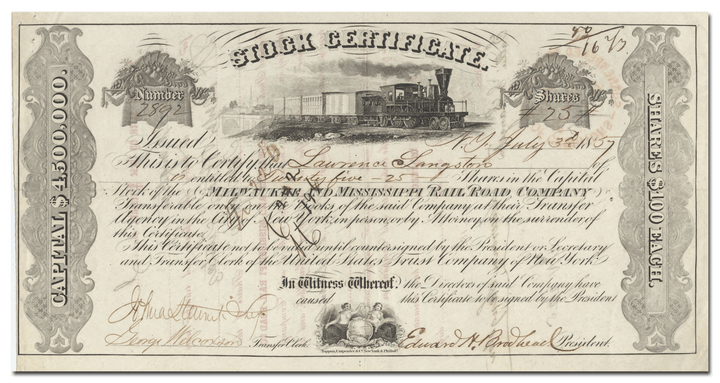 STOCK CERTIFICATE.
Number
2892
Shares
25
CAPITAL $4,500,000.
SHARES $100 EACH.
Issued N.Y. July 3d 1857
This is to Certify that Lawrence Langston
is entitled to Twenty five - 25 Shares in the Capital
Stock of the MILWAUKEE AND MISSISSIPPI RAIL ROAD COMPANY
Transferable only on the books of the said Company at their Transfer
Agency in the City of New York in person, or by Attorney, on the surrender of
this Certificate.
This Certificate not to be valid until countersigned by the President or Secretary
and Transfer Clerk of the United States Trust Company of New York.
In Witness Whereof, the Directors of said Company have
caused this Certificate to be signed by the President
George Wilcoxson Transfer Clerk. Edward H. Brodhead President.
Toppan, Carpenter & Co. New York & Philada.